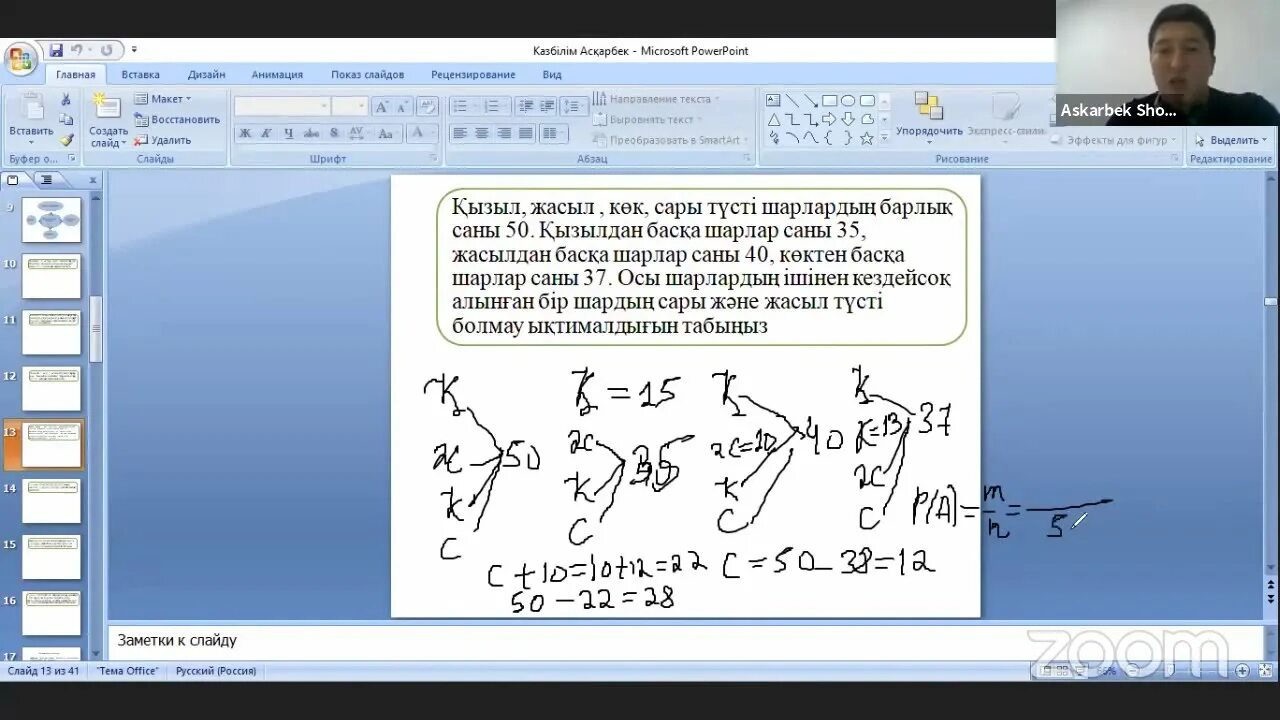 Казбілім Асқарбек - Microsoft PowerPoint
Askarbek Sho...
Главная Вставка Дизайн Анимация Показ слайдов Рецензирование Вид
Вставить
Буфер о...
Создать слайд
Макет
Восстановить
Удалить
Слайды
Ж К Ч abc S AV Aa A
Шрифт
Направление текста
Выровнять текст
Преобразовать в SmartArt
Абзац
Упорядочить
Экспресс-стили
Эффекты для фигур
Рисование
Выделить
Редактирование
9
10
11
12
13
14
15
16
17
Қызыл, жасыл , көк, сары түсті шарлардың барлық
саны 50. Қызылдан басқа шарлар саны 35,
жасылдан басқа шарлар саны 40, көктен басқа
шарлар саны 37. Осы шарлардың ішінен кездейсоқ
алынған бір шардың сары және жасыл түсті
болмау ықтималдығын табыңыз
Қ
ж 50
к
с
Қ = 15
ж
к
с
Қ
ж=10 40
к
с
Қ 37
к=13
ж
с
P(A) = m/n =
5
с + 10 = 10 + 12 = 22
с = 50 - 38 = 12
50 - 22 = 28
Заметки к слайду
zoom
Слайд 13 из 41 "Тема Office" Русский (Россия)